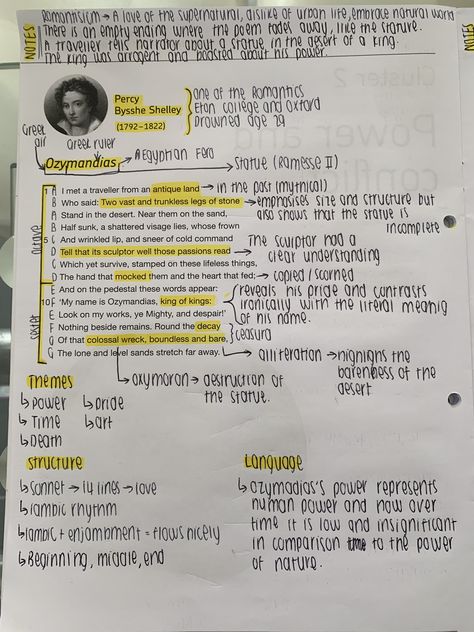 NOTES
Romanticism → A love of the supernatural, dislike of urban life, embrace natural world
There is an empty ending where the poem fades away, like the statue.
A traveller tells narrator about a statue in the desert of a king.
The king was arrogent and boasted about his power.
NOTES
Cluster 2
Power and
conflict
Percy
Bysshe Shelley
(1792–1822)
one of the Romantics
Eton college and Oxford
Drowned age 29
Greek
air
Greek ruler
Ozymandias
→ Aegyptian Fero
→ Statue (Ramesse II)
octave
A I met a traveller from an antique land → in the past (mythical)
B Who said: Two vast and trunkless legs of stone → emphasises size and structure but
also shows that the statue is
incomplete
A Stand in the desert. Near them on the sand,
B Half sunk, a shattered visage lies, whose frown
5 C And wrinkled lip, and sneer of cold command
D Tell that its sculptor well those passions read
The sculptor had a
clear understanding
C Which yet survive, stamped on these lifeless things,
D The hand that mocked them and the heart that fed; → copied/scorned
sestet
E And on the pedestal these words appear:
10 F ‘My name is Ozymandias, king of kings:
reveals his pride and contrasts
ironically with the literal meanig
of his name.
E Look on my works, ye Mighty, and despair!’
F Nothing beside remains. Round the decay
G Of that colossal wreck, boundless and bare,
ceasura
G The lone and level sands stretch far away.
→ alliteration → highlighs the
bareness of the
desert
→ oxymoron → destruction of
the statue.
Themes
↳ Power ↳ pride
↳ Time ↳ art
↳ Death
Structure
↳ sonnet → 14 lines → love
↳ iambic rhythm
↳ iambic + enjambment = flows nicely
↳ Beginning, middle, end
Language
↳ ozymadias's power represents
human power and now over
time it is low and insignificant
in comparison to the power
of nature.